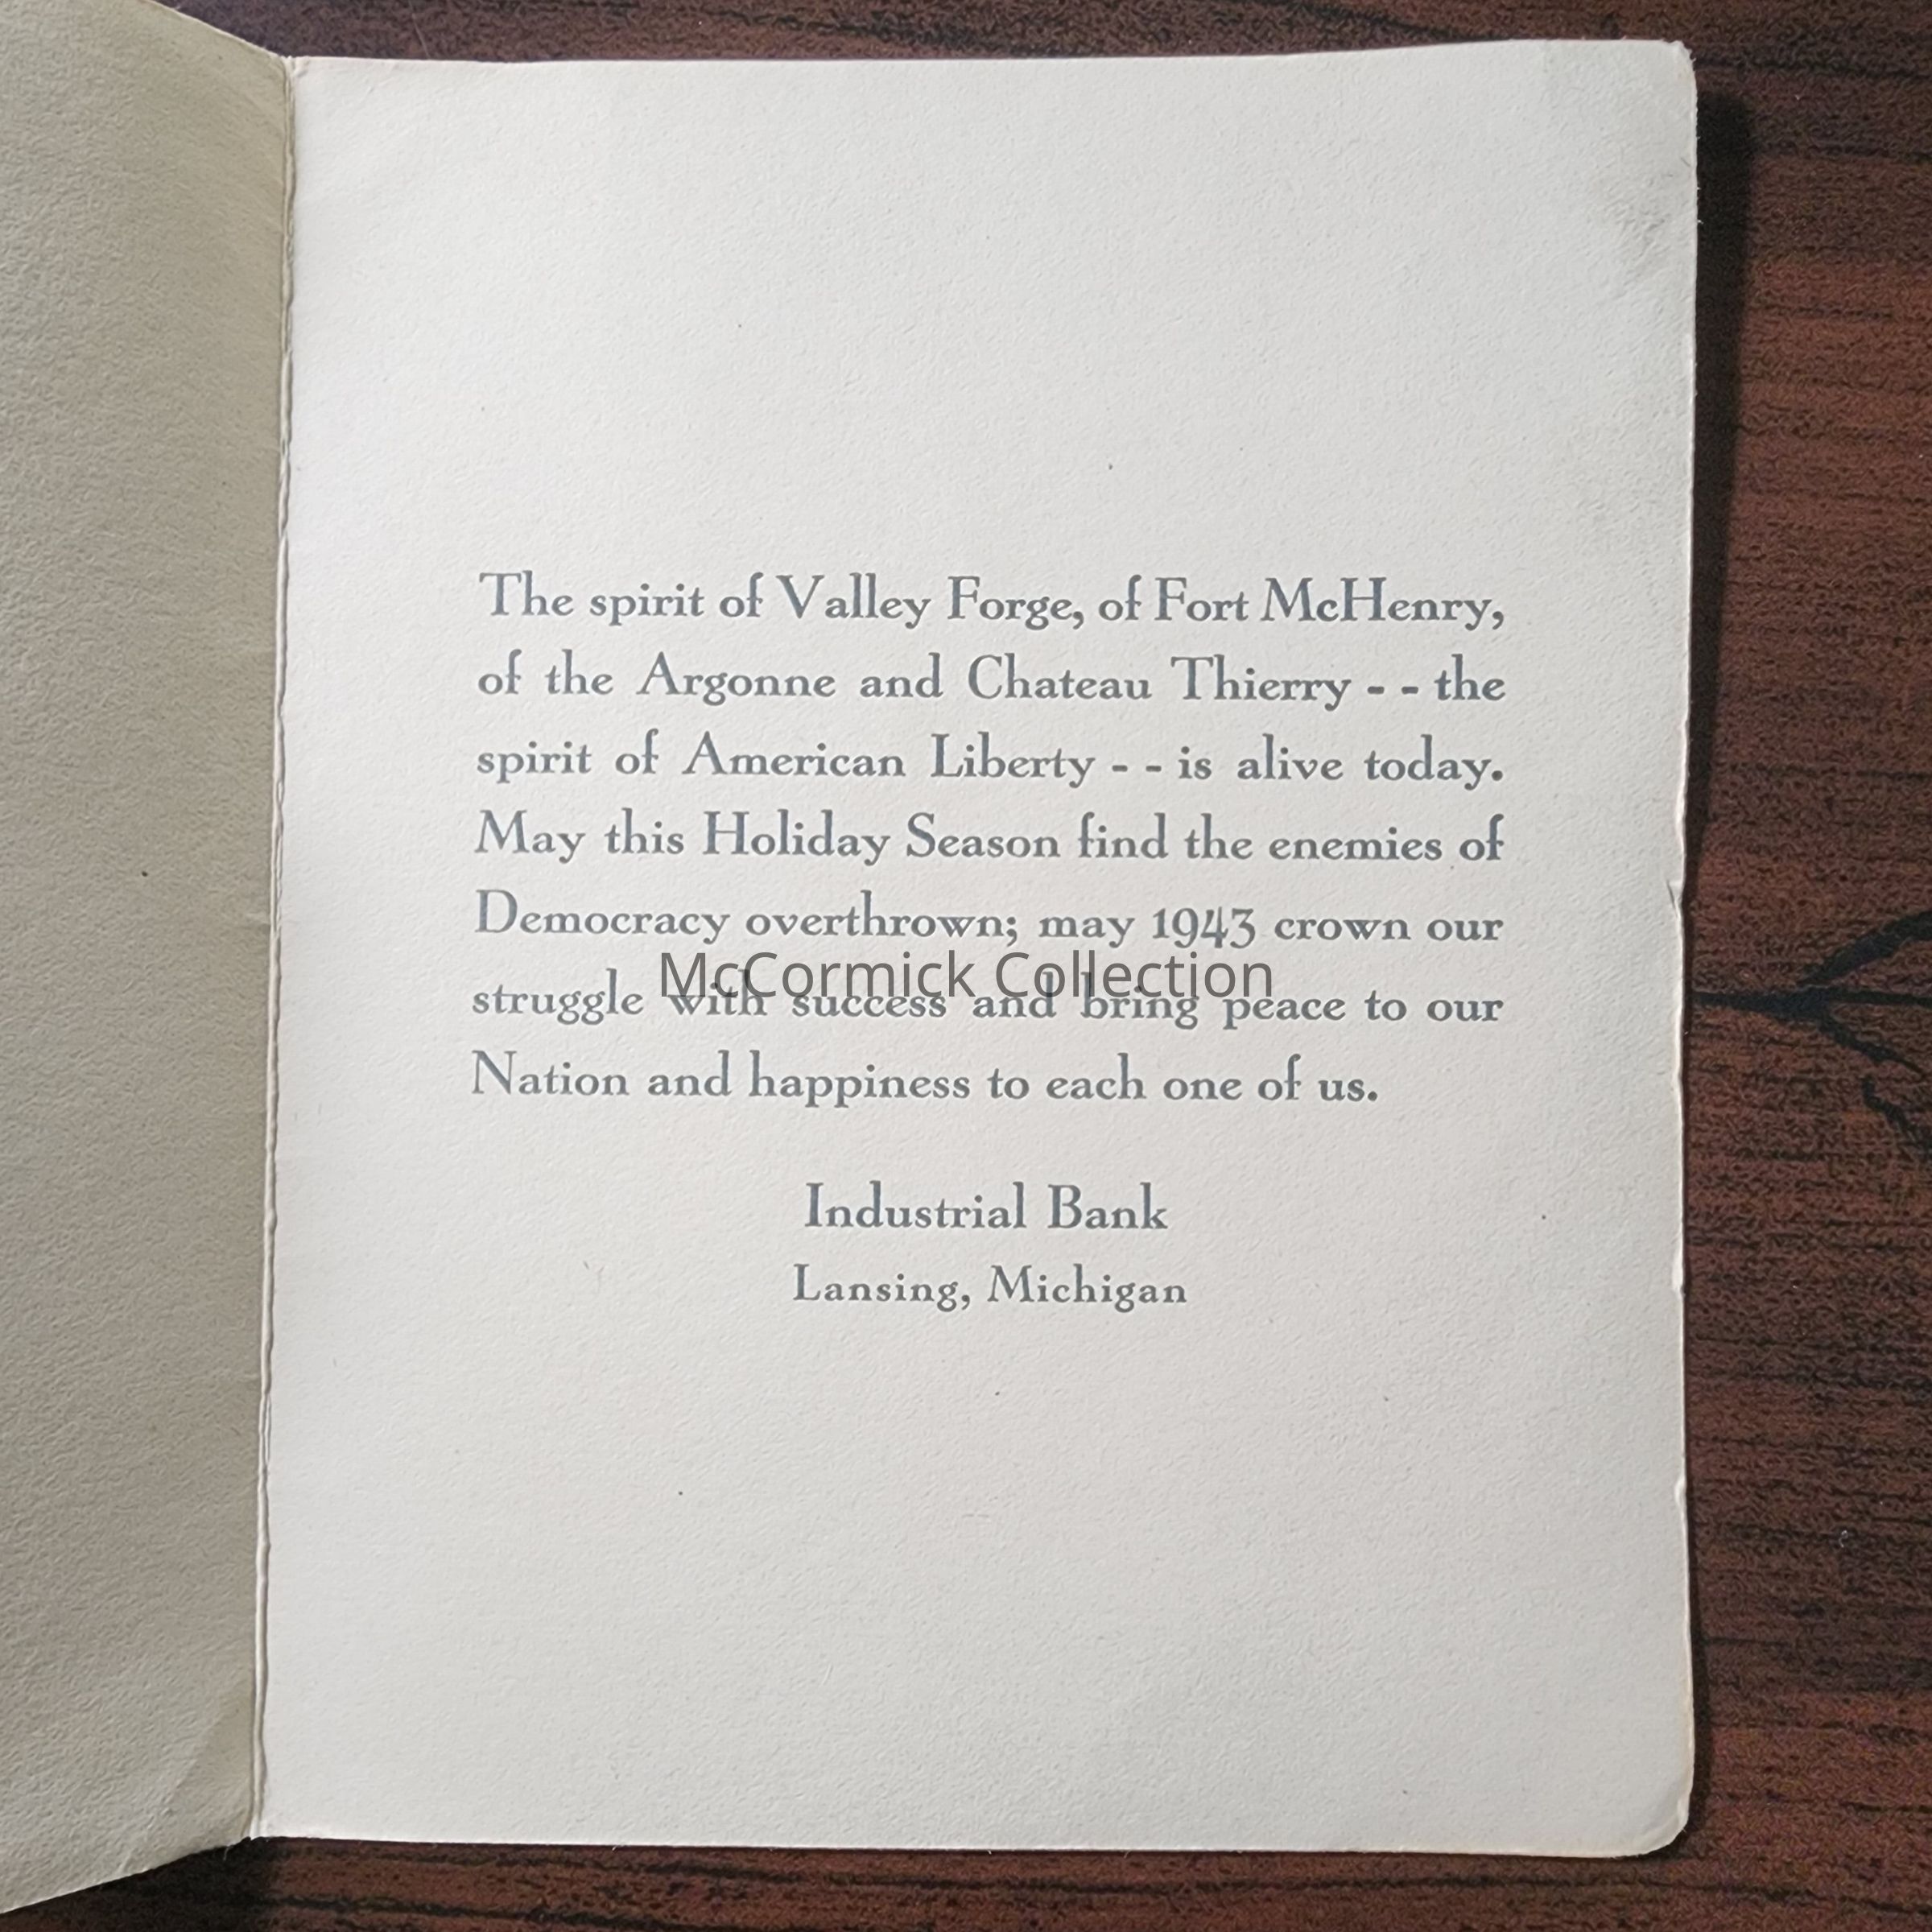 The spirit of Valley Forge, of Fort McHenry,
of the Argonne and Chateau Thierry - - the
spirit of American Liberty - - is alive today.
May this Holiday Season find the enemies of
Democracy overthrown; may 1943 crown our
McCormick Collection
struggle with success and bring peace to our
Nation and happiness to each one of us.
Industrial Bank
Lansing, Michigan